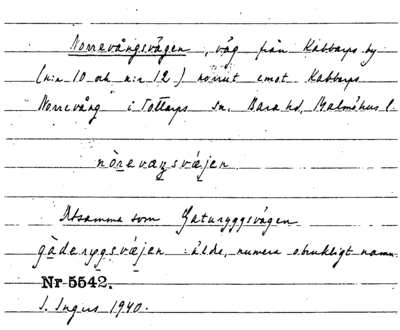 Norrevångsvägen, väg från Kabbarps by
(n:r 10 och n:r 12) norrut emot Kabbarps
Norrevång i Tottarps sn, Bara hd, Malmöhus l.
nòrevaŋsvæjen
Detsamma som Gaturyggsvägen
gàderygsvæjen : äldre, numera obrukligt namn.
Nr 5542.
J. Ingers 1940.